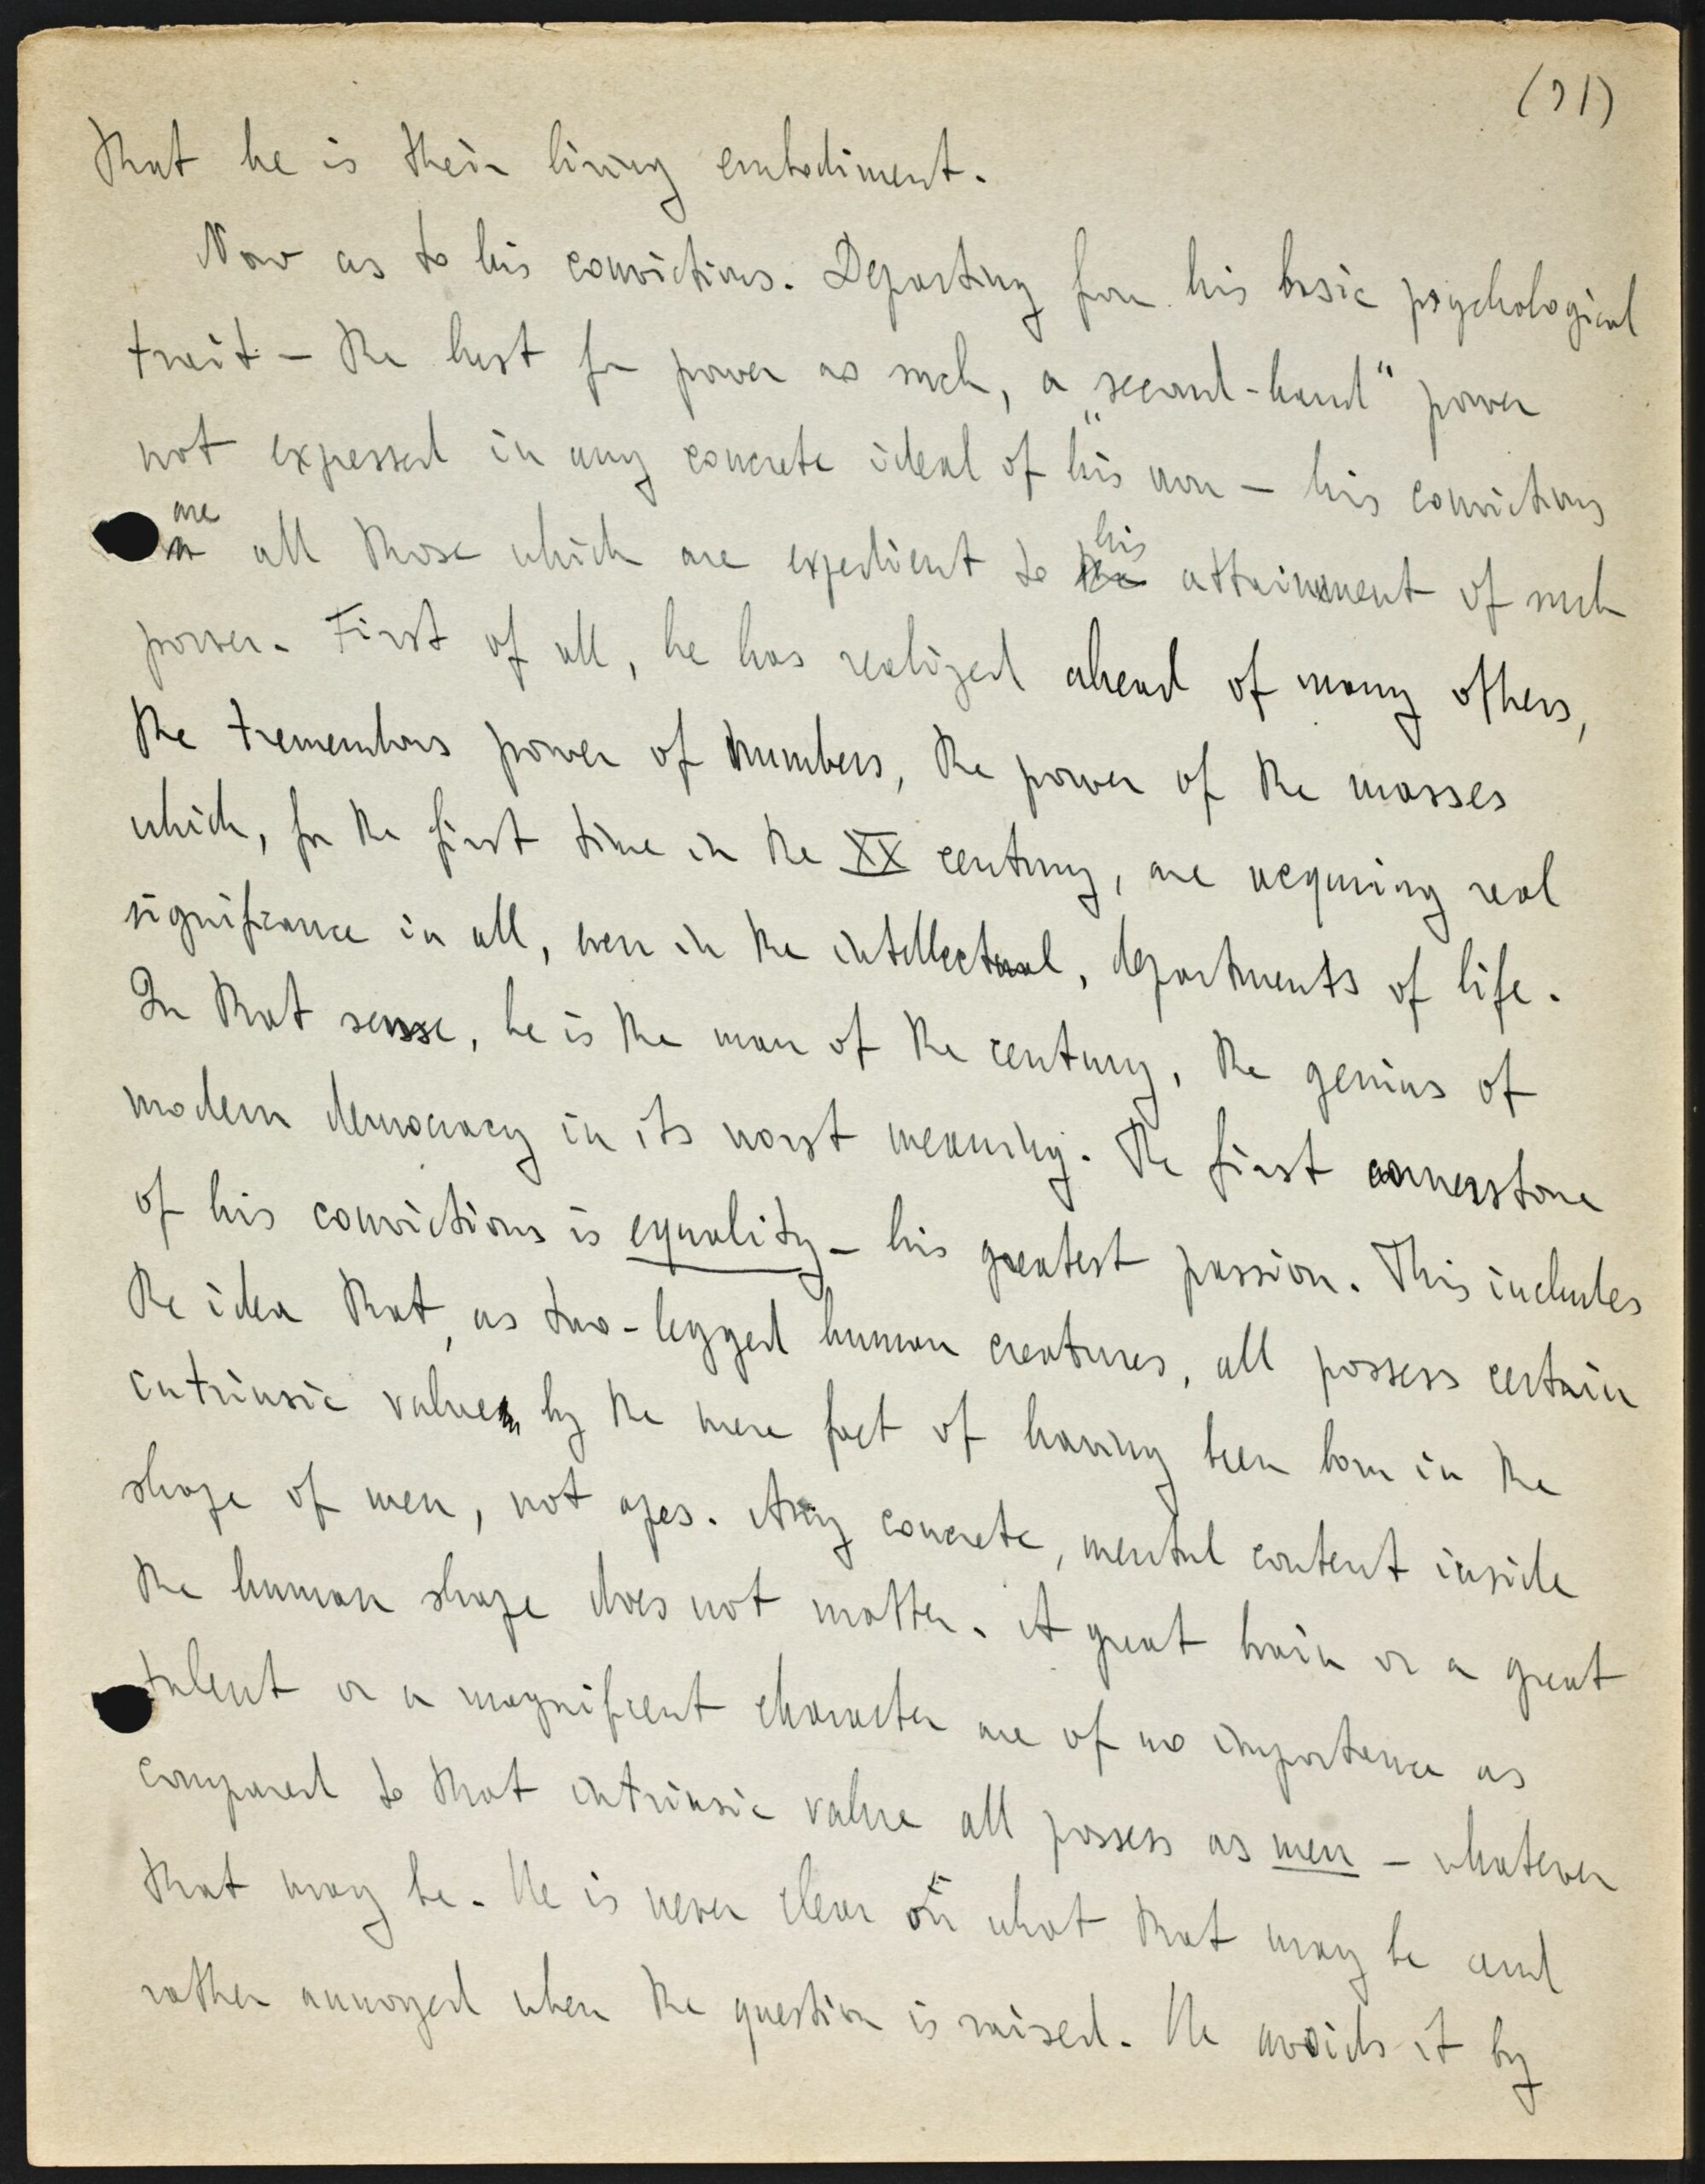 (31)
that he is their living embodiment.
Now as to his convictions. Departing from his basic psychological
trait — the lust for power as such, a „second-hand" power
not expressed in any concrete ideal of his own — his convictions
are all those which are expedient to his attainment of such
power. First of all, he has realized ahead of many others,
the tremendous power of numbers, the power of the masses
which, for the first time in the XX century, are acquiring real
significance in all, even in the intellectual, departments of life.
In that sense, he is the man of the century, the genius of
modern democracy in its worst meaning. The first cornerstone
of his convictions is equality — his greatest passion. This includes
the idea that, as two-legged human creatures, all possess certain
intrinsic value by the mere fact of having been born in the
shape of men, not apes. Any concrete, mental content inside
the human shape does not matter. A great brain or a great
talent or a magnificent character are of no importance as
compared to that intrinsic value all possess as men — whatever
that may be. He is never clear on what that may be and
rather annoyed when the question is raised. He avoids it by